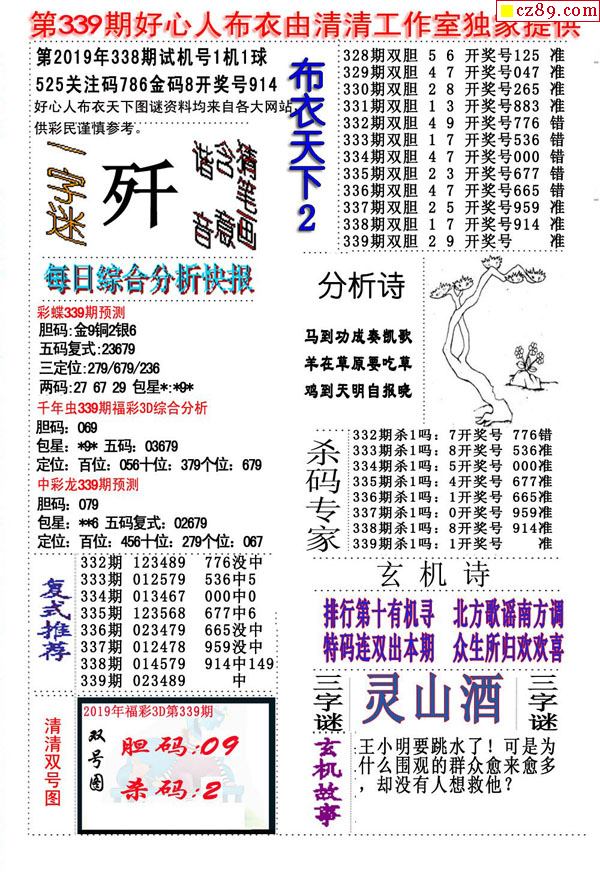 cz89.com
第339期好心人布衣由清清工作室独家提供
第2019年338期试机号1机1球
525关注码786金码8开奖号914
好心人布衣天下图谜资料均来自各大网站,
供彩民谨慎参考。
一字迷
歼
谐音
含意
猜笔画
每日综合分析快报
彩蝶339期预测
胆码:金9铜2银6
五码复式:23679
三定位:279/679/236
两码:27 67 29 包星*:*9*
千年虫339期福彩3D综合分析
胆码: 069
包星: *9* 五码: 03679
定位: 百位: 056十位: 379个位: 679
中彩龙339期预测
胆码: 079
包星: **6 五码复式: 02679
定位: 百位: 456十位: 279个位: 067
复式推荐
332期 123489 776没中
333期 012579 536中5
334期 013467 000中0
335期 123568 677中6
336期 023479 665没中
337期 012478 959没中
338期 014579 914中149
339期 023489 中
清清双号图
2019年福彩3D第339期
双号图
胆码:09
杀码:2
布衣天下2
328期双胆 5 6 开奖号125 准
329期双胆 4 7 开奖号047 准
330期双胆 2 8 开奖号265 准
331期双胆 1 3 开奖号883 准
332期双胆 4 9 开奖号776 错
333期双胆 1 7 开奖号536 错
334期双胆 4 7 开奖号000 错
335期双胆 2 3 开奖号677 错
336期双胆 4 7 开奖号665 错
337期双胆 2 5 开奖号959 准
338期双胆 1 7 开奖号914 准
339期双胆 2 9 开奖号 准
分析诗
马到功成奏凯歌
羊在草原要吃草
鸡到天明自报晓
杀码专家
332期杀1吗: 7开奖号 776错
333期杀1吗: 8开奖号 536准
334期杀1吗: 5开奖号 000准
335期杀1吗: 4开奖号 677准
336期杀1吗: 1开奖号 665准
337期杀1吗: 0开奖号 959准
338期杀1吗: 8开奖号 914准
339期杀1吗: 1开奖号 准
玄机诗
排行第十有机寻 北方歌谣南方调
特码连双出本期 众生所归欢欢喜
三字谜
灵山酒
三字谜
玄机故事
王小明要跳水了！可是为
什么围观的群众愈来愈多
，却没有人想救他？